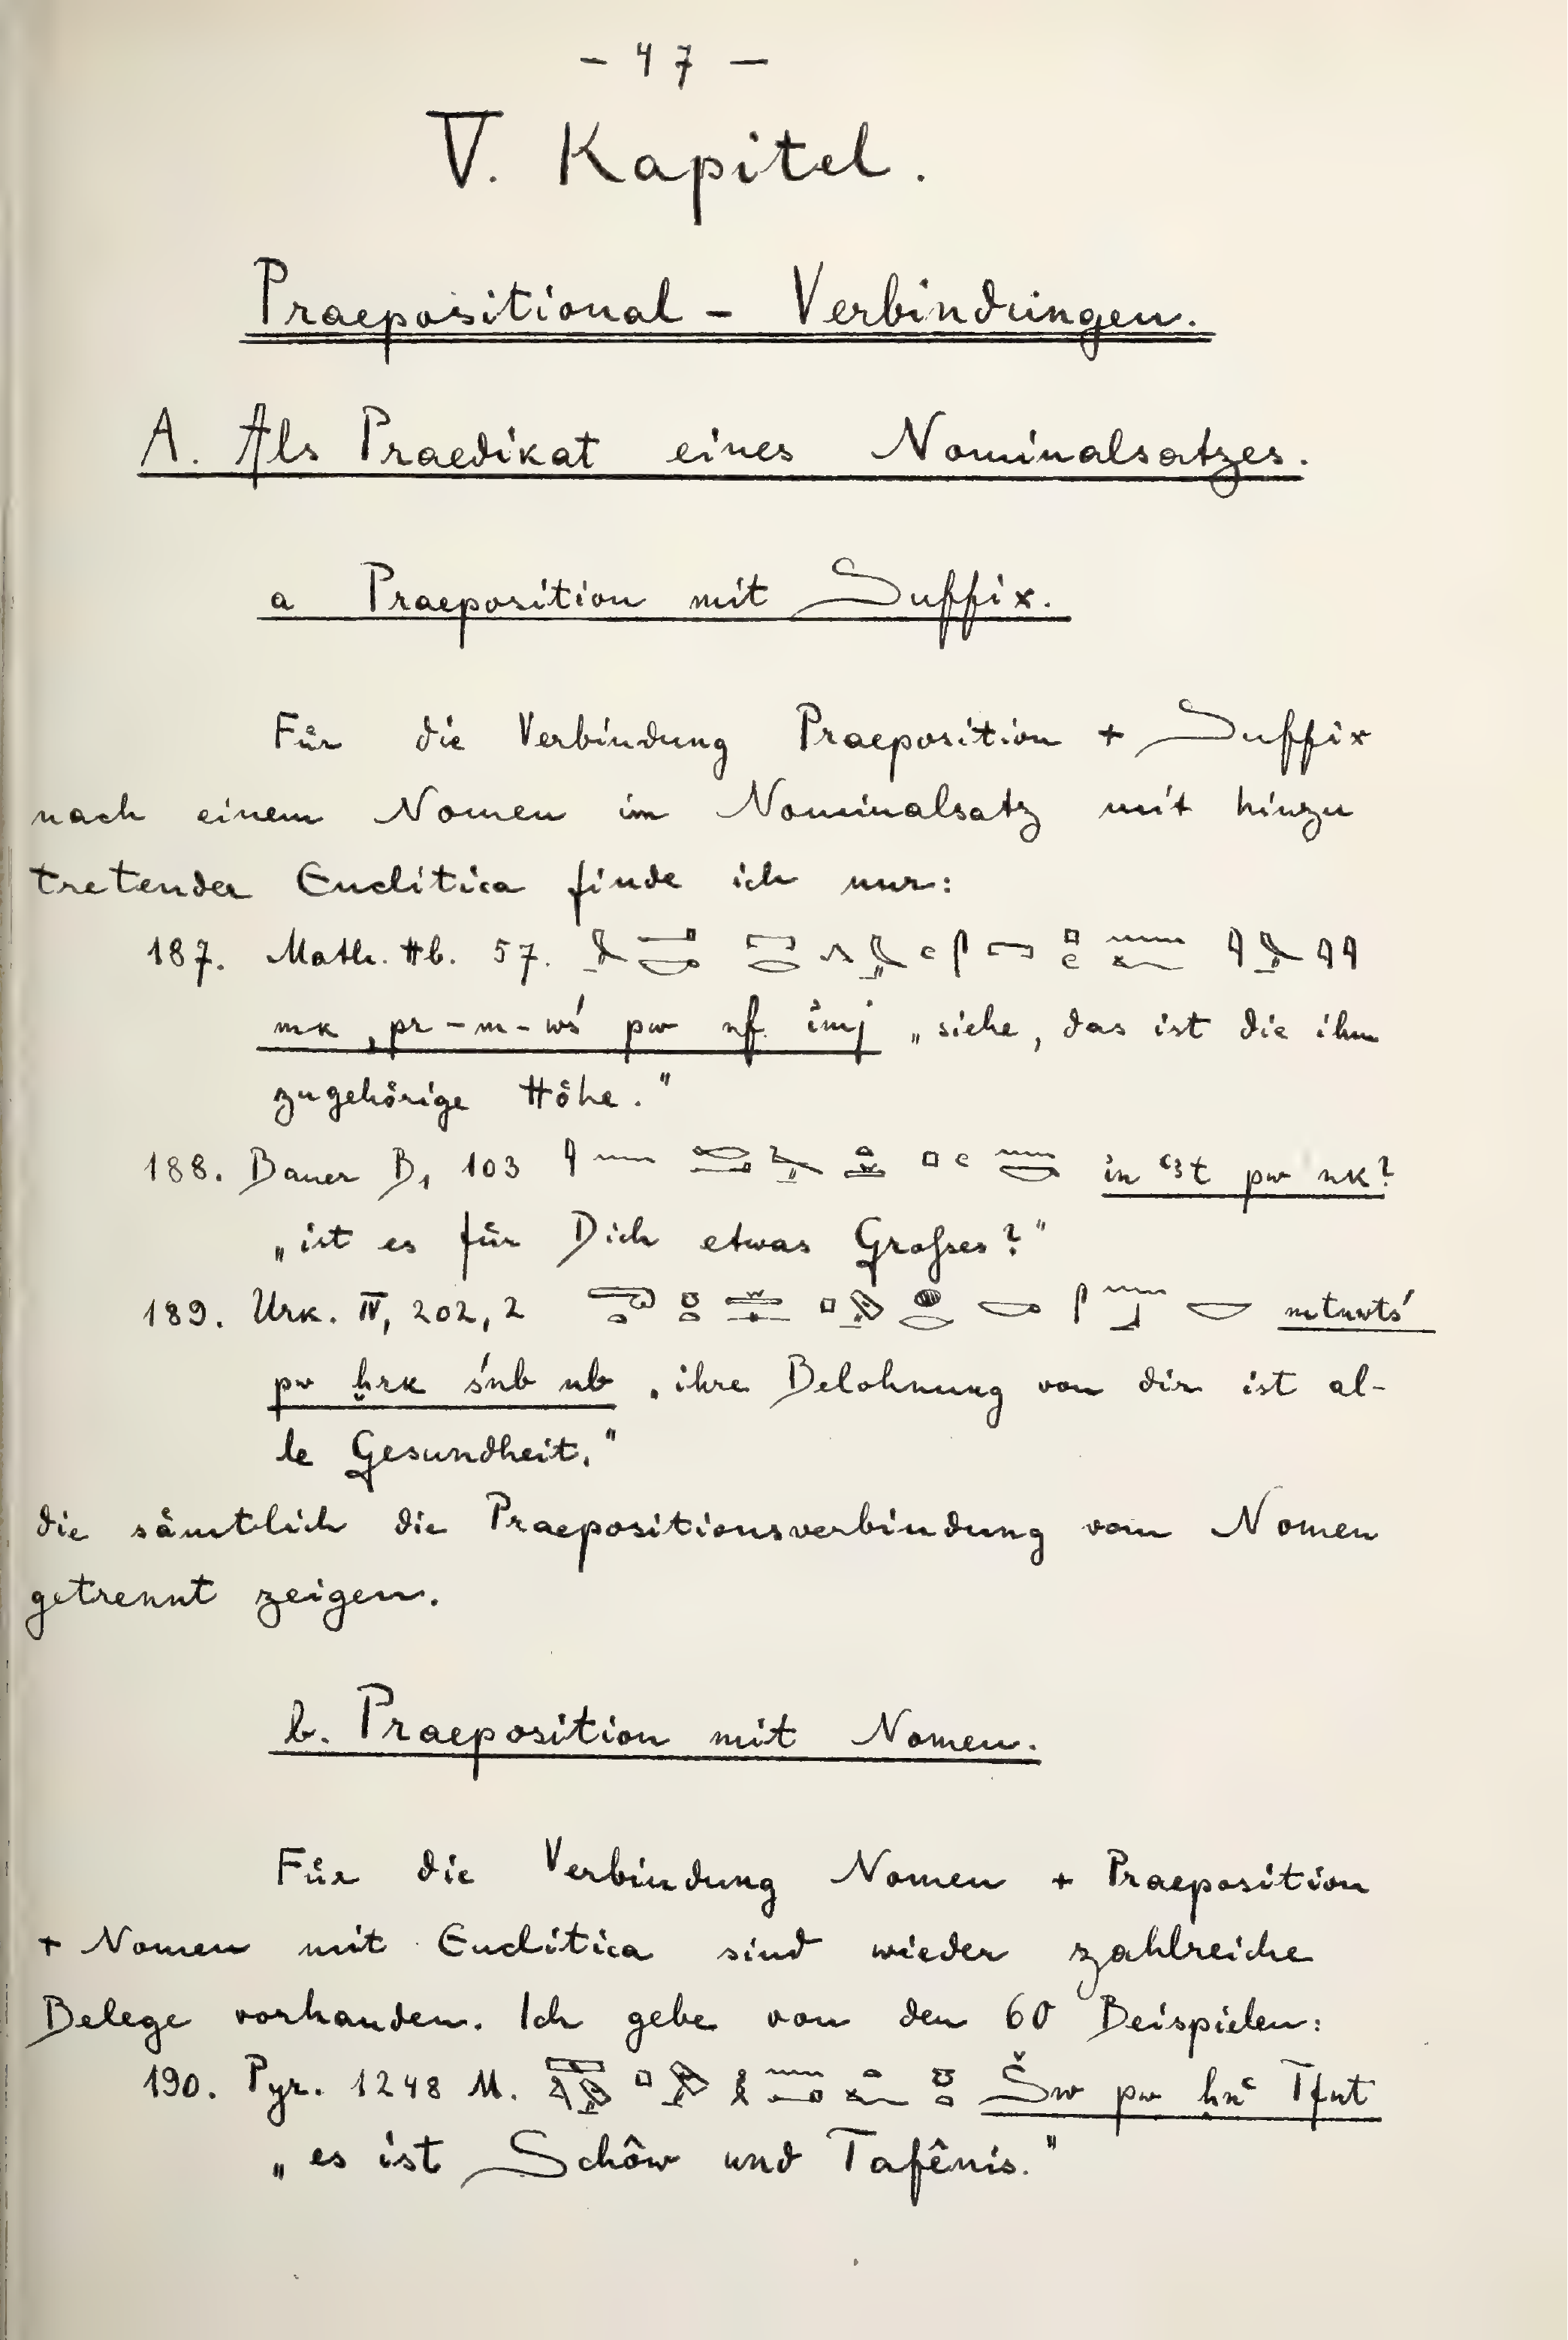 - 47 -
V. Kapitel.
Praepositional - Verbindungen.
A. Als Praedikat eines Nominalsatzes.
a Praeposition mit Suffix.
Für die Verbindung Praeposition + Suffix
nach einem Nomen im Nominalsatz mit hinzu
tretender Enclitica finde ich nur:
187. Math. Hb. 57.
mk, pr-m-wś pw nf imj „siehe, das ist die ihm
zugehörige Höhe."
188. Bauer B, 103 in ꜥꜣt pw nk?
„ist es für Dich etwas Großes?"
189. Urk. IV, 202, 2 mtnwtś
pw ḫrk śnb nb „ihre Belohnung von dir ist al-
le Gesundheit."
die sämtlich die Praepositionsverbindung vom Nomen
getrennt zeigen.
b. Praeposition mit Nomen.
Für die Verbindung Nomen + Praeposition
+ Nomen mit Enclitica sind wieder zahlreiche
Belege vorhanden. Ich gebe von den 60 Beispielen:
190. Pyr. 1248 M. Šw pw ḥnꜥ Tfnt
„es ist Schôw und Tafênis."